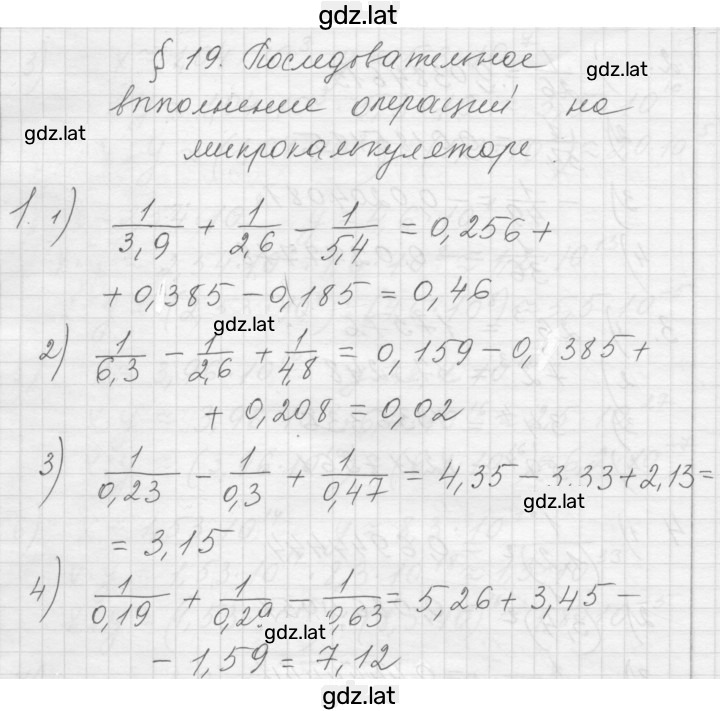 gdz.lat
§ 19. Последовательное
gdz.lat
впполнение операций на
gdz.lat
микрокалькуляторе.
1. 1) 1/3,9 + 1/2,6 − 1/5,4 = 0,256 +
+ 0,385 − 0,185 = 0,46
gdz.lat
2) 1/6,3 − 1/2,6 + 1/4,8 = 0,159 − 0,385 +
+ 0,208 = 0,02
3) 1/0,23 − 1/0,3 + 1/0,47 = 4,35 − 3.33 + 2,13 =
gdz.lat
= 3,15
4) 1/0,19 + 1/0,29 − 1/0,63 = 5,26 + 3,45 −
gdz.lat
− 1,59 = 7,12
gdz.lat